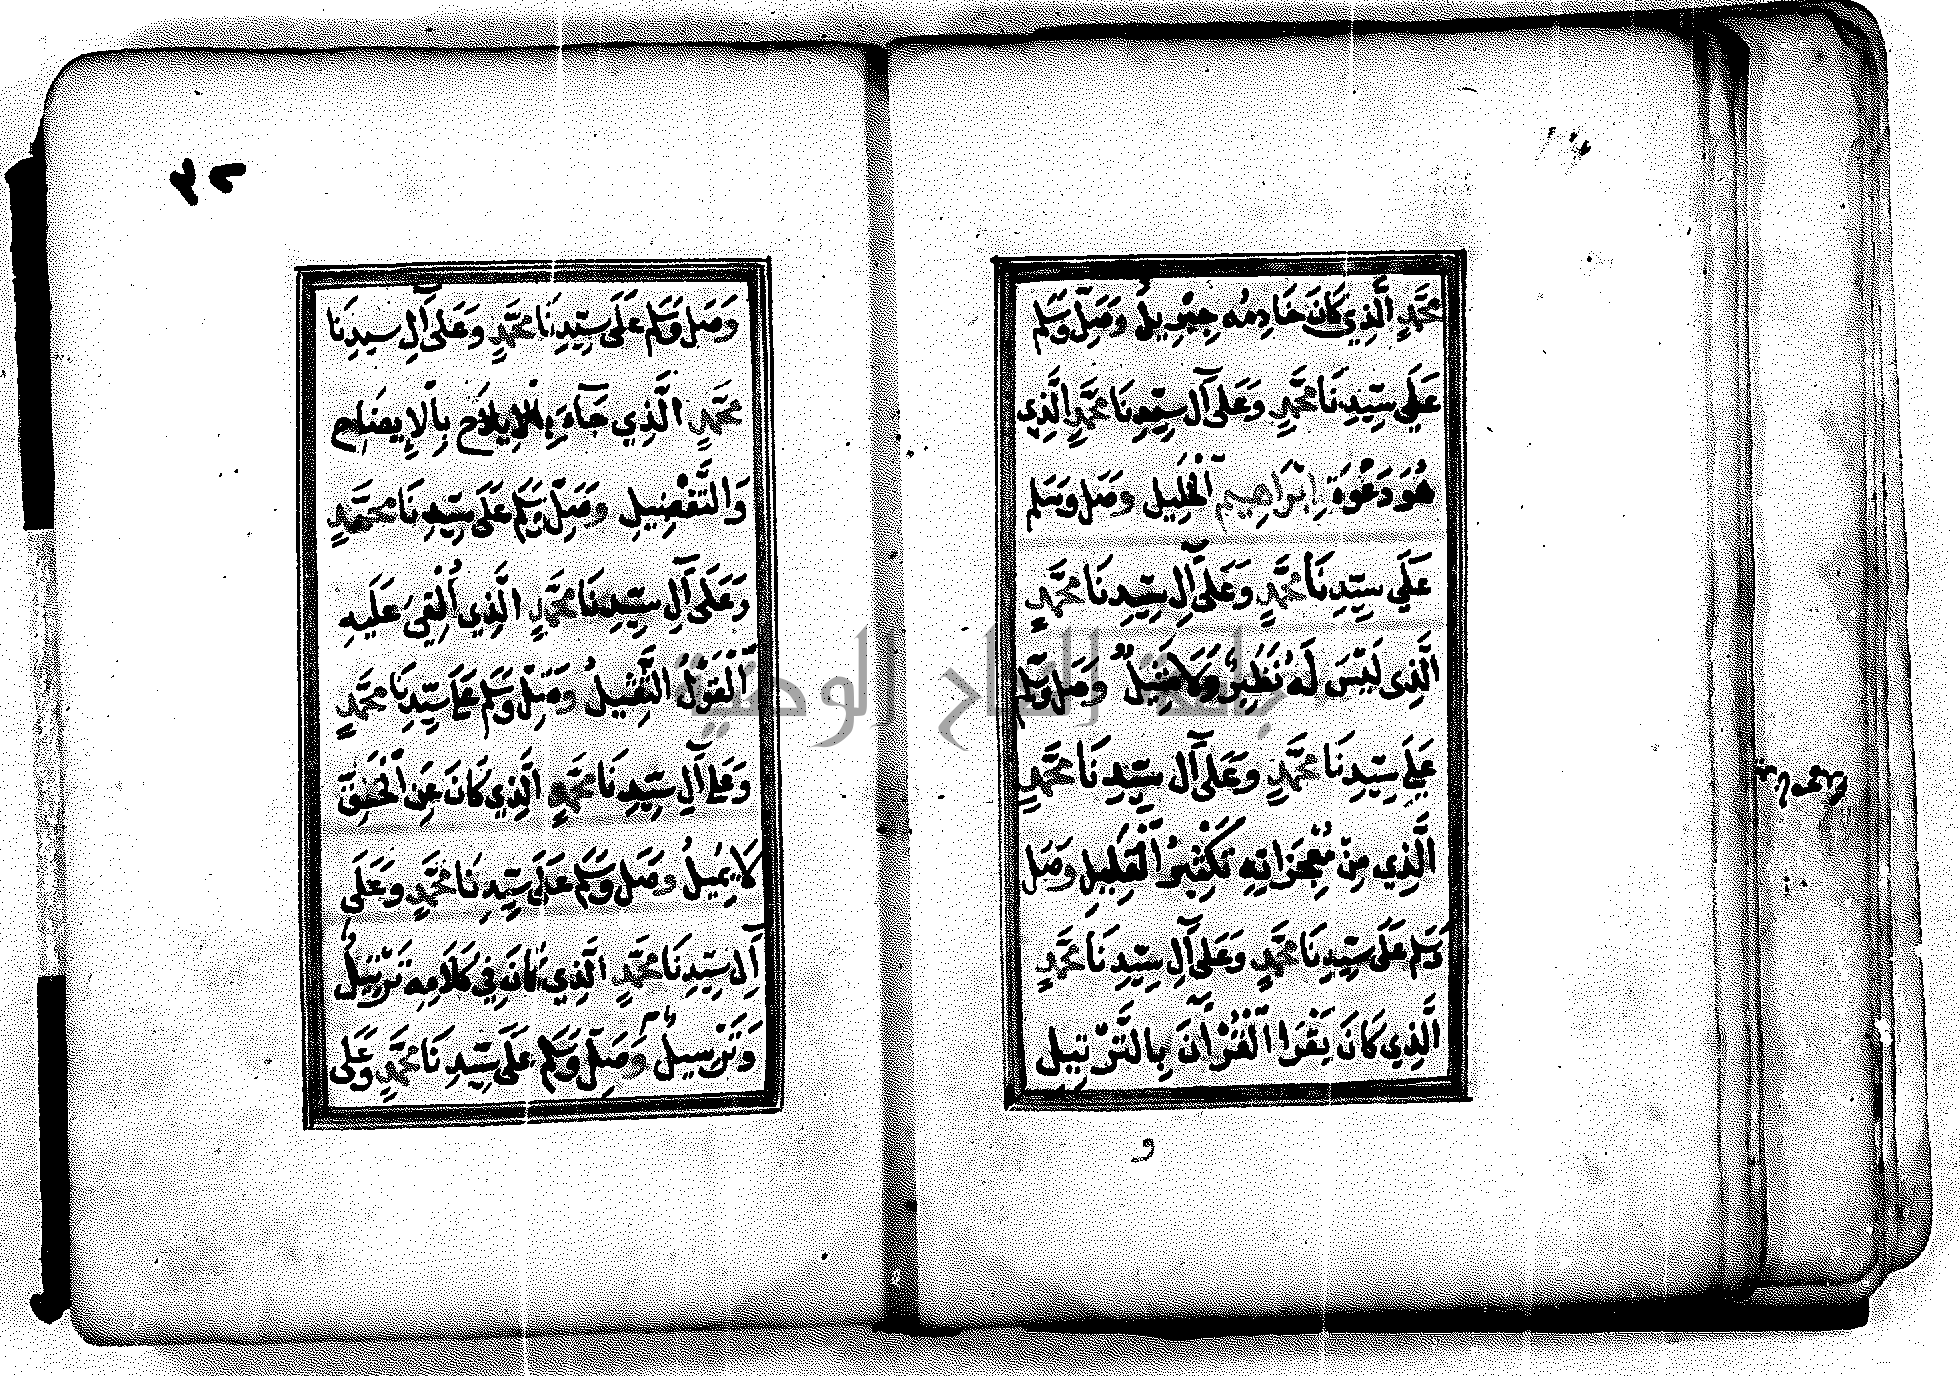 مُحَمَّدٍ الَّذِي كَانَ خَادِمُه جِبْرِيلُ وَصَلِّ وَسَلِّم
عَلَى سَيِّدِنَا مُحَمَّدٍ وَعَلَى آلِ سَيِّدِنَا مُحَمَّدٍ الَّذِي
هُوَ دَعْوَةُ إِبْرَاهِيمَ الْخَلِيلِ وَصَلِّ وَسَلِّم
عَلَى سَيِّدِنَا مُحَمَّدٍ وَعَلَى آلِ سَيِّدِنَا مُحَمَّدٍ
الَّذِي لَيْسَ لَهُ نَظِيرٌ وَلَا مَثِيلٌ وَصَلِّ وَسَلِّم
عَلَى سَيِّدِنَا مُحَمَّدٍ وَعَلَى آلِ سَيِّدِنَا مُحَمَّدٍ
الَّذِي مِنْ مُعْجِزَاتِهِ تَكْثِيرُ الْقَلِيلِ وَصَلِّ
وَسَلِّم عَلَى سَيِّدِنَا مُحَمَّدٍ وَعَلَى آلِ سَيِّدِنَا مُحَمَّدٍ
الَّذِي كَانَ يَقْرَأُ الْقُرْآنَ بِالتَّرْتِيلِ
و
٣٢
وَصَلِّ وَسَلِّم عَلَى سَيِّدِنَا مُحَمَّدٍ وَعَلَى آلِ سَيِّدِنَا
مُحَمَّدٍ الَّذِي جَاءَ بِالْإِيلَاحِ بِالْإِيضَاحِ
وَالتَّفْضِيلِ وَصَلِّ وَسَلِّم عَلَى سَيِّدِنَا مُحَمَّدٍ
وَعَلَى آلِ سَيِّدِنَا مُحَمَّدٍ الَّذِي أُلْقِيَ عَلَيهِ
الْقَوْلُ الثَّقِيلُ وَصَلِّ وَسَلِّم عَلَى سَيِّدِنَا مُحَمَّدٍ
وَعَلَى آلِ سَيِّدِنَا مُحَمَّدٍ الَّذِي كَانَ عَنِ الْحَقِّ
لَا يَمِيلُ وَصَلِّ وَسَلِّم عَلَى سَيِّدِنَا مُحَمَّدٍ وَعَلَى
آلِ سَيِّدِنَا مُحَمَّدٍ الَّذِي كَانَ فِي كَلَامِهِ تَرْتِيلٌ
وَتَرْسِيلٌ وَصَلِّ وَسَلِّم عَلَى سَيِّدِنَا مُحَمَّدٍ وَعَلَى
جامعة النجاح الوطنية